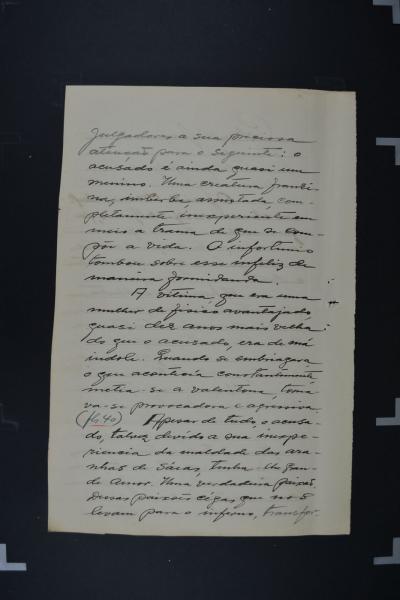 julgadores a sua preciosa
atenção para o seguinte: o
acusado é ainda quasi um
menino. Uma creatura franzi-
na, imberbe, assustada, com-
pletamente inexperiente em
meio a trama de que se com-
põe a vida. O infortunio
tombou sobre esse infeliz de
maneira formidanda.
A vitima, que era uma
mulher de fisico avantajado,
quasi dez anos mais velha
do que o acusado, era de má
indole. Quando se embriagava
o que acontecia constantemente
metia-se a valentona, torna-
va-se provocadora e agressiva.
Apesar de tudo, o acusa-
do, talvez devido a sua inexpe-
riencia da maldade das ara-
nhas de saias, tinha-lhe gran-
de amor. Uma verdadeira paixão.
Dessas paixões cégas que nos
levam para o inferno, transfor-